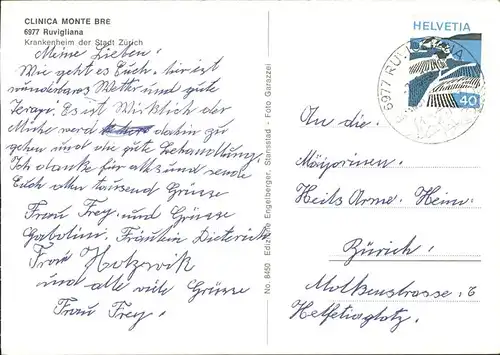 CLINICA MONTE BRE
6977 Ruvigliana
Krankenheim der Stadt Zürich
Meine Lieben!
Wie geht es Euch, hir ist
wunderbares Wetter und gute
Terapi. Es ist Wirklich der
Mühe werd dahin zu
gehen und die gute Behandlung.
Ich danke für alles und sende
Euch allen tausend Grüsse
Frau Frey, und Grüsse
Fräulein Dieterich
Frau Hotzwik
und alle viele Grüsse
Frau Frey.
No. 8450 Edizione Engelberger, Stansstad - Foto Garazzei
HELVETIA
40
6977 RUVIGLIANA
An die.
Majorinen.
Heils Arme. Heim.
Zürich.
Molkenstrasse. 6
Helfetiaplatz.